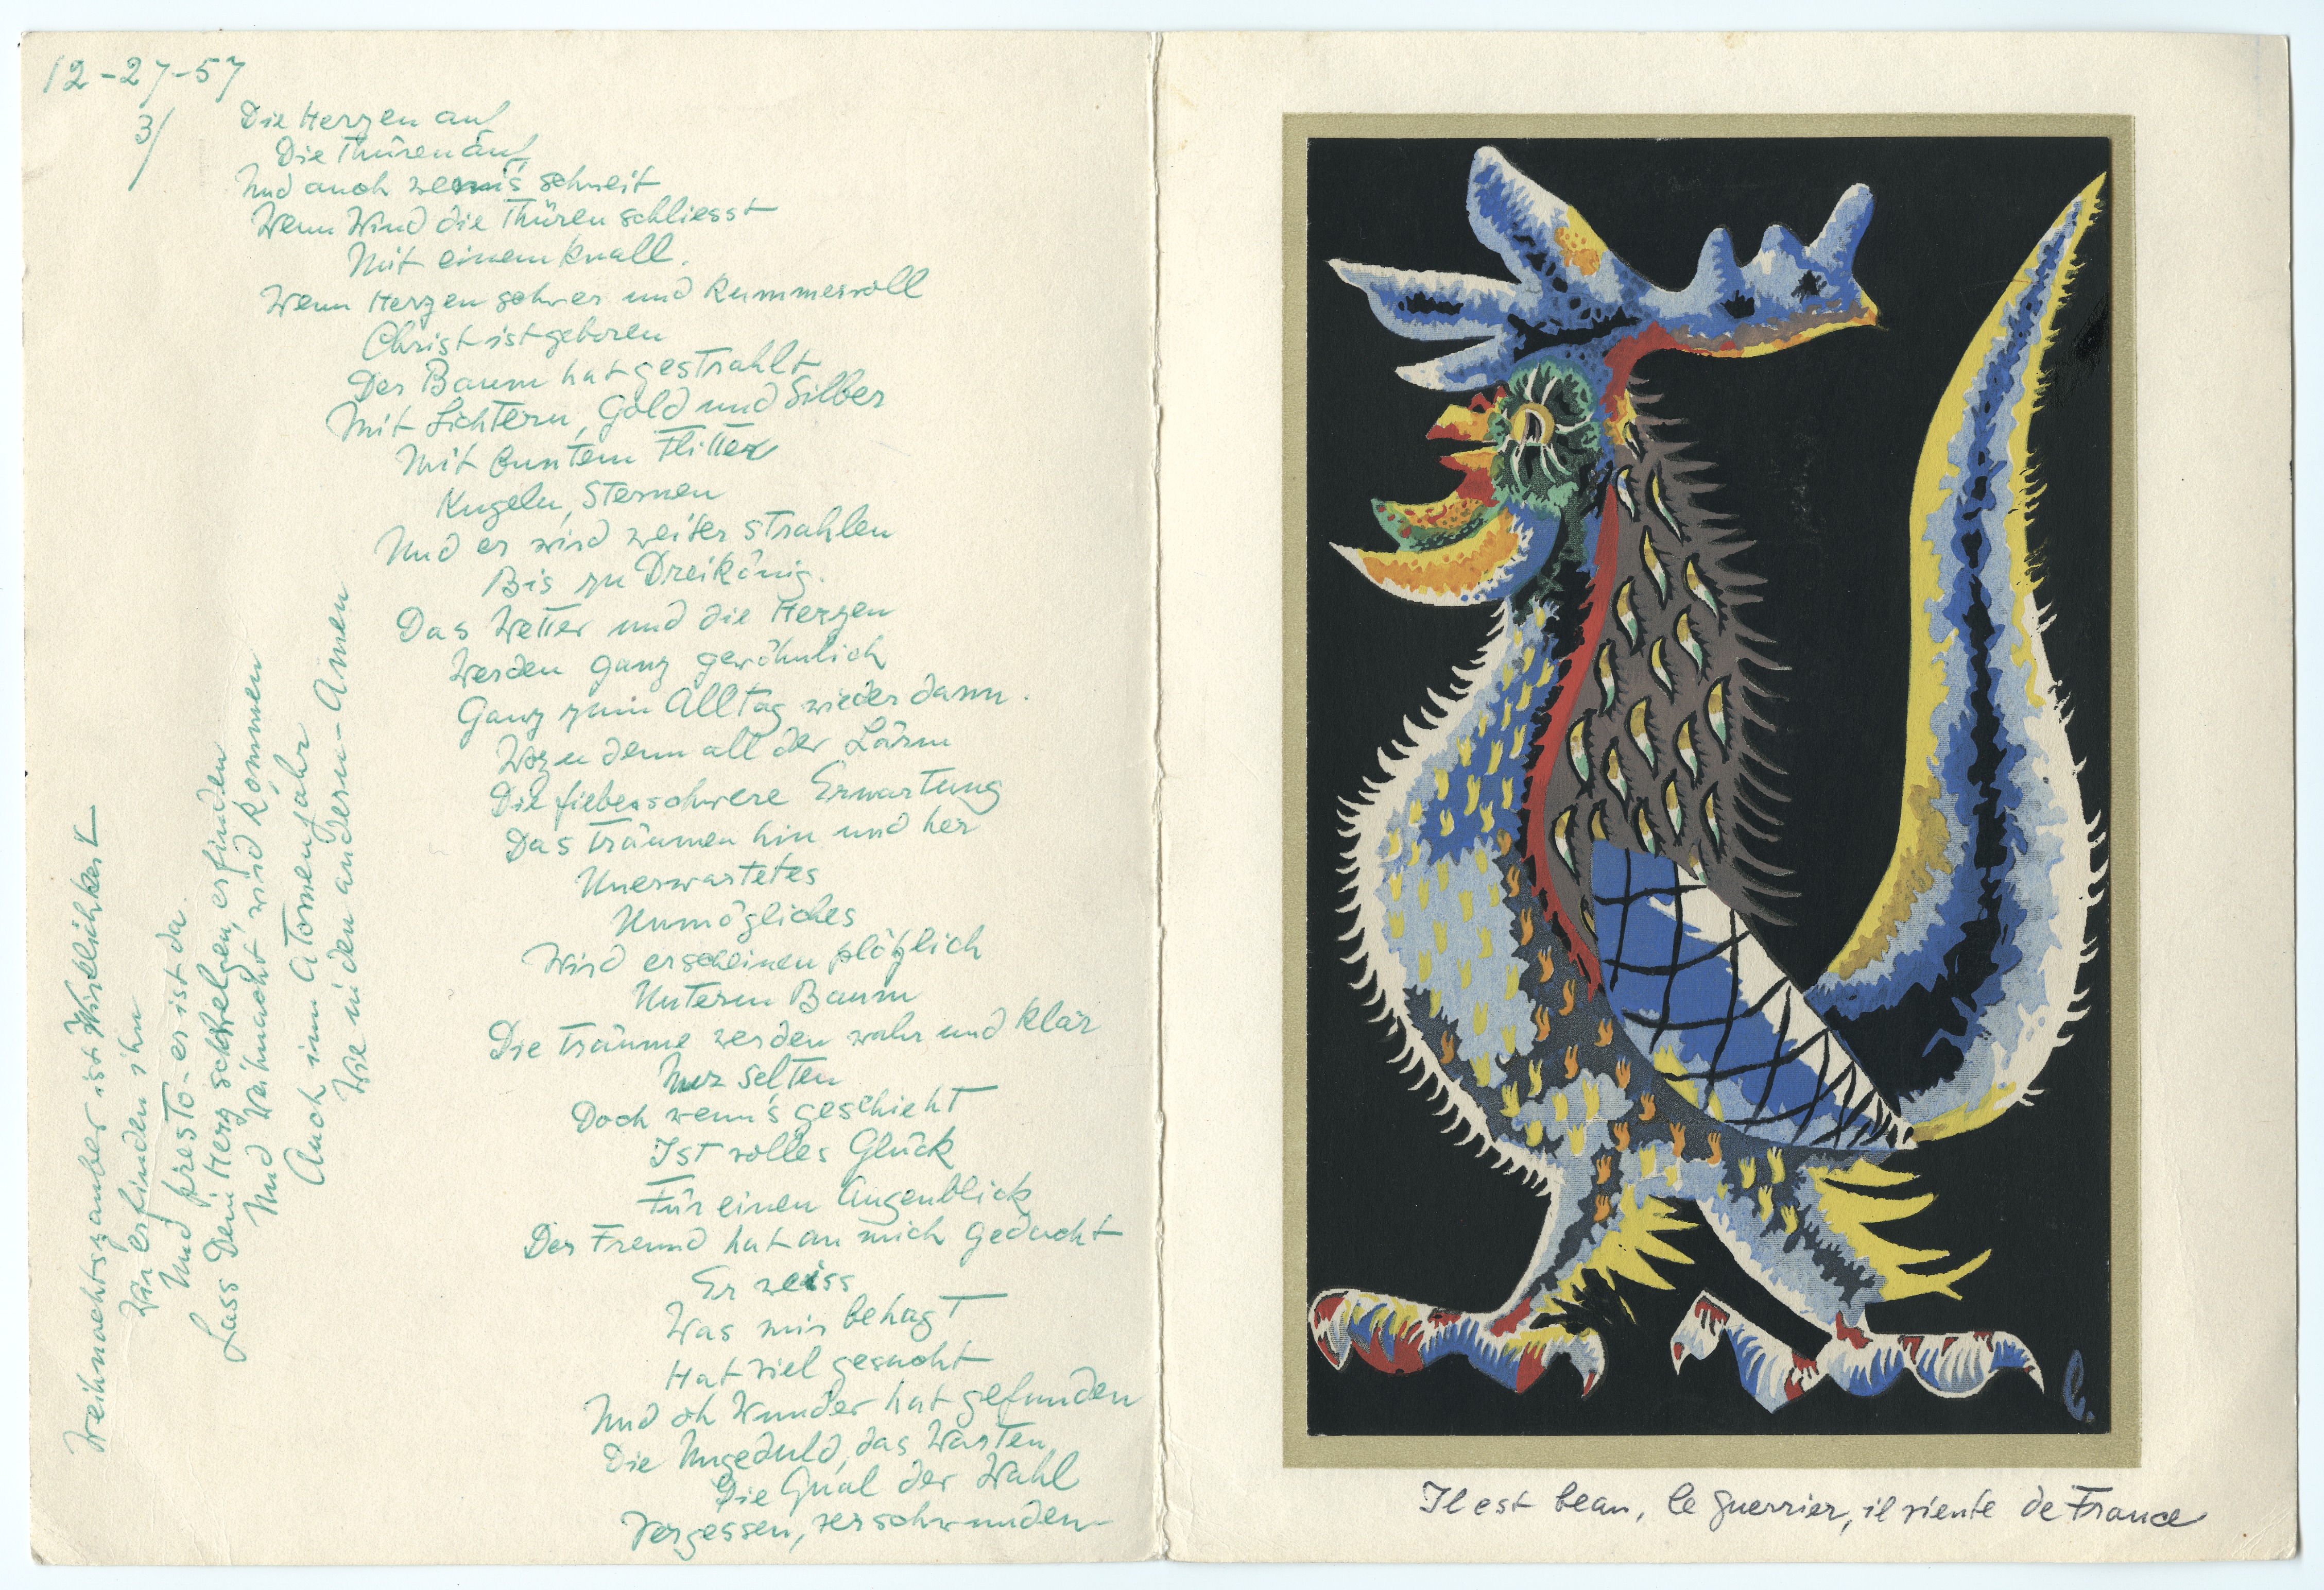 12-27-57
3/
Die Herzen auf
Die Thüren auf
Und auch wenn's schneit
Wenn Wind die Thüren schliesst
Mit einem Knall.
Wenn Herzen schwer und kummervoll
Christ ist geboren
Der Baum hat gestrahlt
Mit Lichtern, Gold und Silber
Mit buntem Flitter
Kugeln, Sternen
Und er wird weiter strahlen
Bis zu Dreikönig.
Das Wetter und die Herzen
Werden ganz gewöhnlich
Ganz zum Alltag wieder dann.
Wozu denn all der Lärm
Die fieberschwere Erwartung
Das Träumen hin und her
Unerwartetes
Unmögliches
Wird erscheinen plötzlich
Unterm Baum
Die Träume werden wahr und klar
Nur selten
Doch wenn's geschieht
Ist volles Glück
Für einen Augenblick
Der Freund hat an mich gedacht
Er weiss
Was mir behagt
Hat viel gesucht
Und oh Wunder hat gefunden
Die Ungeduld, das Warten
Die Qual der Wahl
Vergessen, verschwunden-
Weihnachtszauber ist Wirklichkeit
Wir erfinden ihn
Und presto - er ist da.
Lass Dein Herz schwelgen, erfinden
Und Weihnacht wird kommen
Auch im Atomenjahr
Wie in den andern - Amen
Il est beau, le guerrier, il viente de France